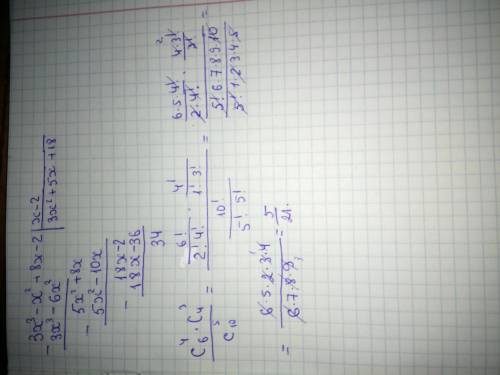 3x³ - x² + 8x - 2 | x - 2
- 3x³ - 6x² | 3x² + 5x + 18
5x² + 8x
- 5x² - 10x
18x - 2
- 18x - 36
34
C₆⁴ · C₄³ / C₁₀⁵ = 6!/(2! 4!) · 4!/(1! 3!) / 10!/(5! 5!) = 6·5·4!/(2·4!) · 4·3!/3! / 5!·6·7·8·9·10/(5!·1·2·3·4·5) =
= 6·5·2·3·4/(6·7·8·9) = 5/21